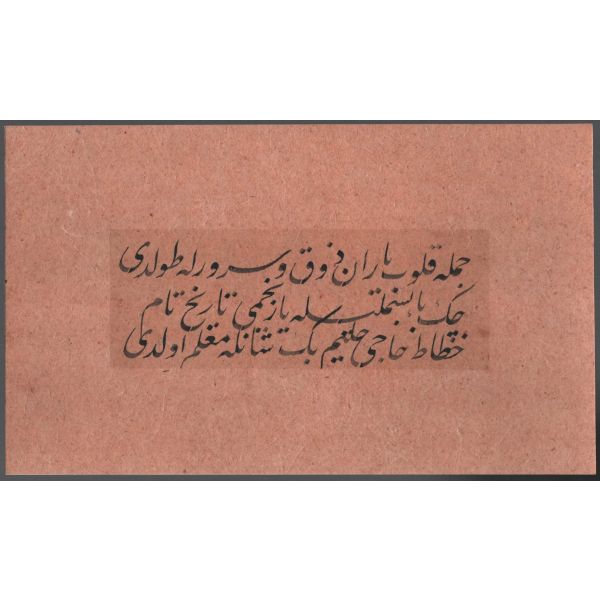 جمله قلوب یاران ذوق و سرورله طولدی
چک با بسمله یاز نجمی تاریخ تام
خطاط حاجی حلیم بک شانله معلم اولدی